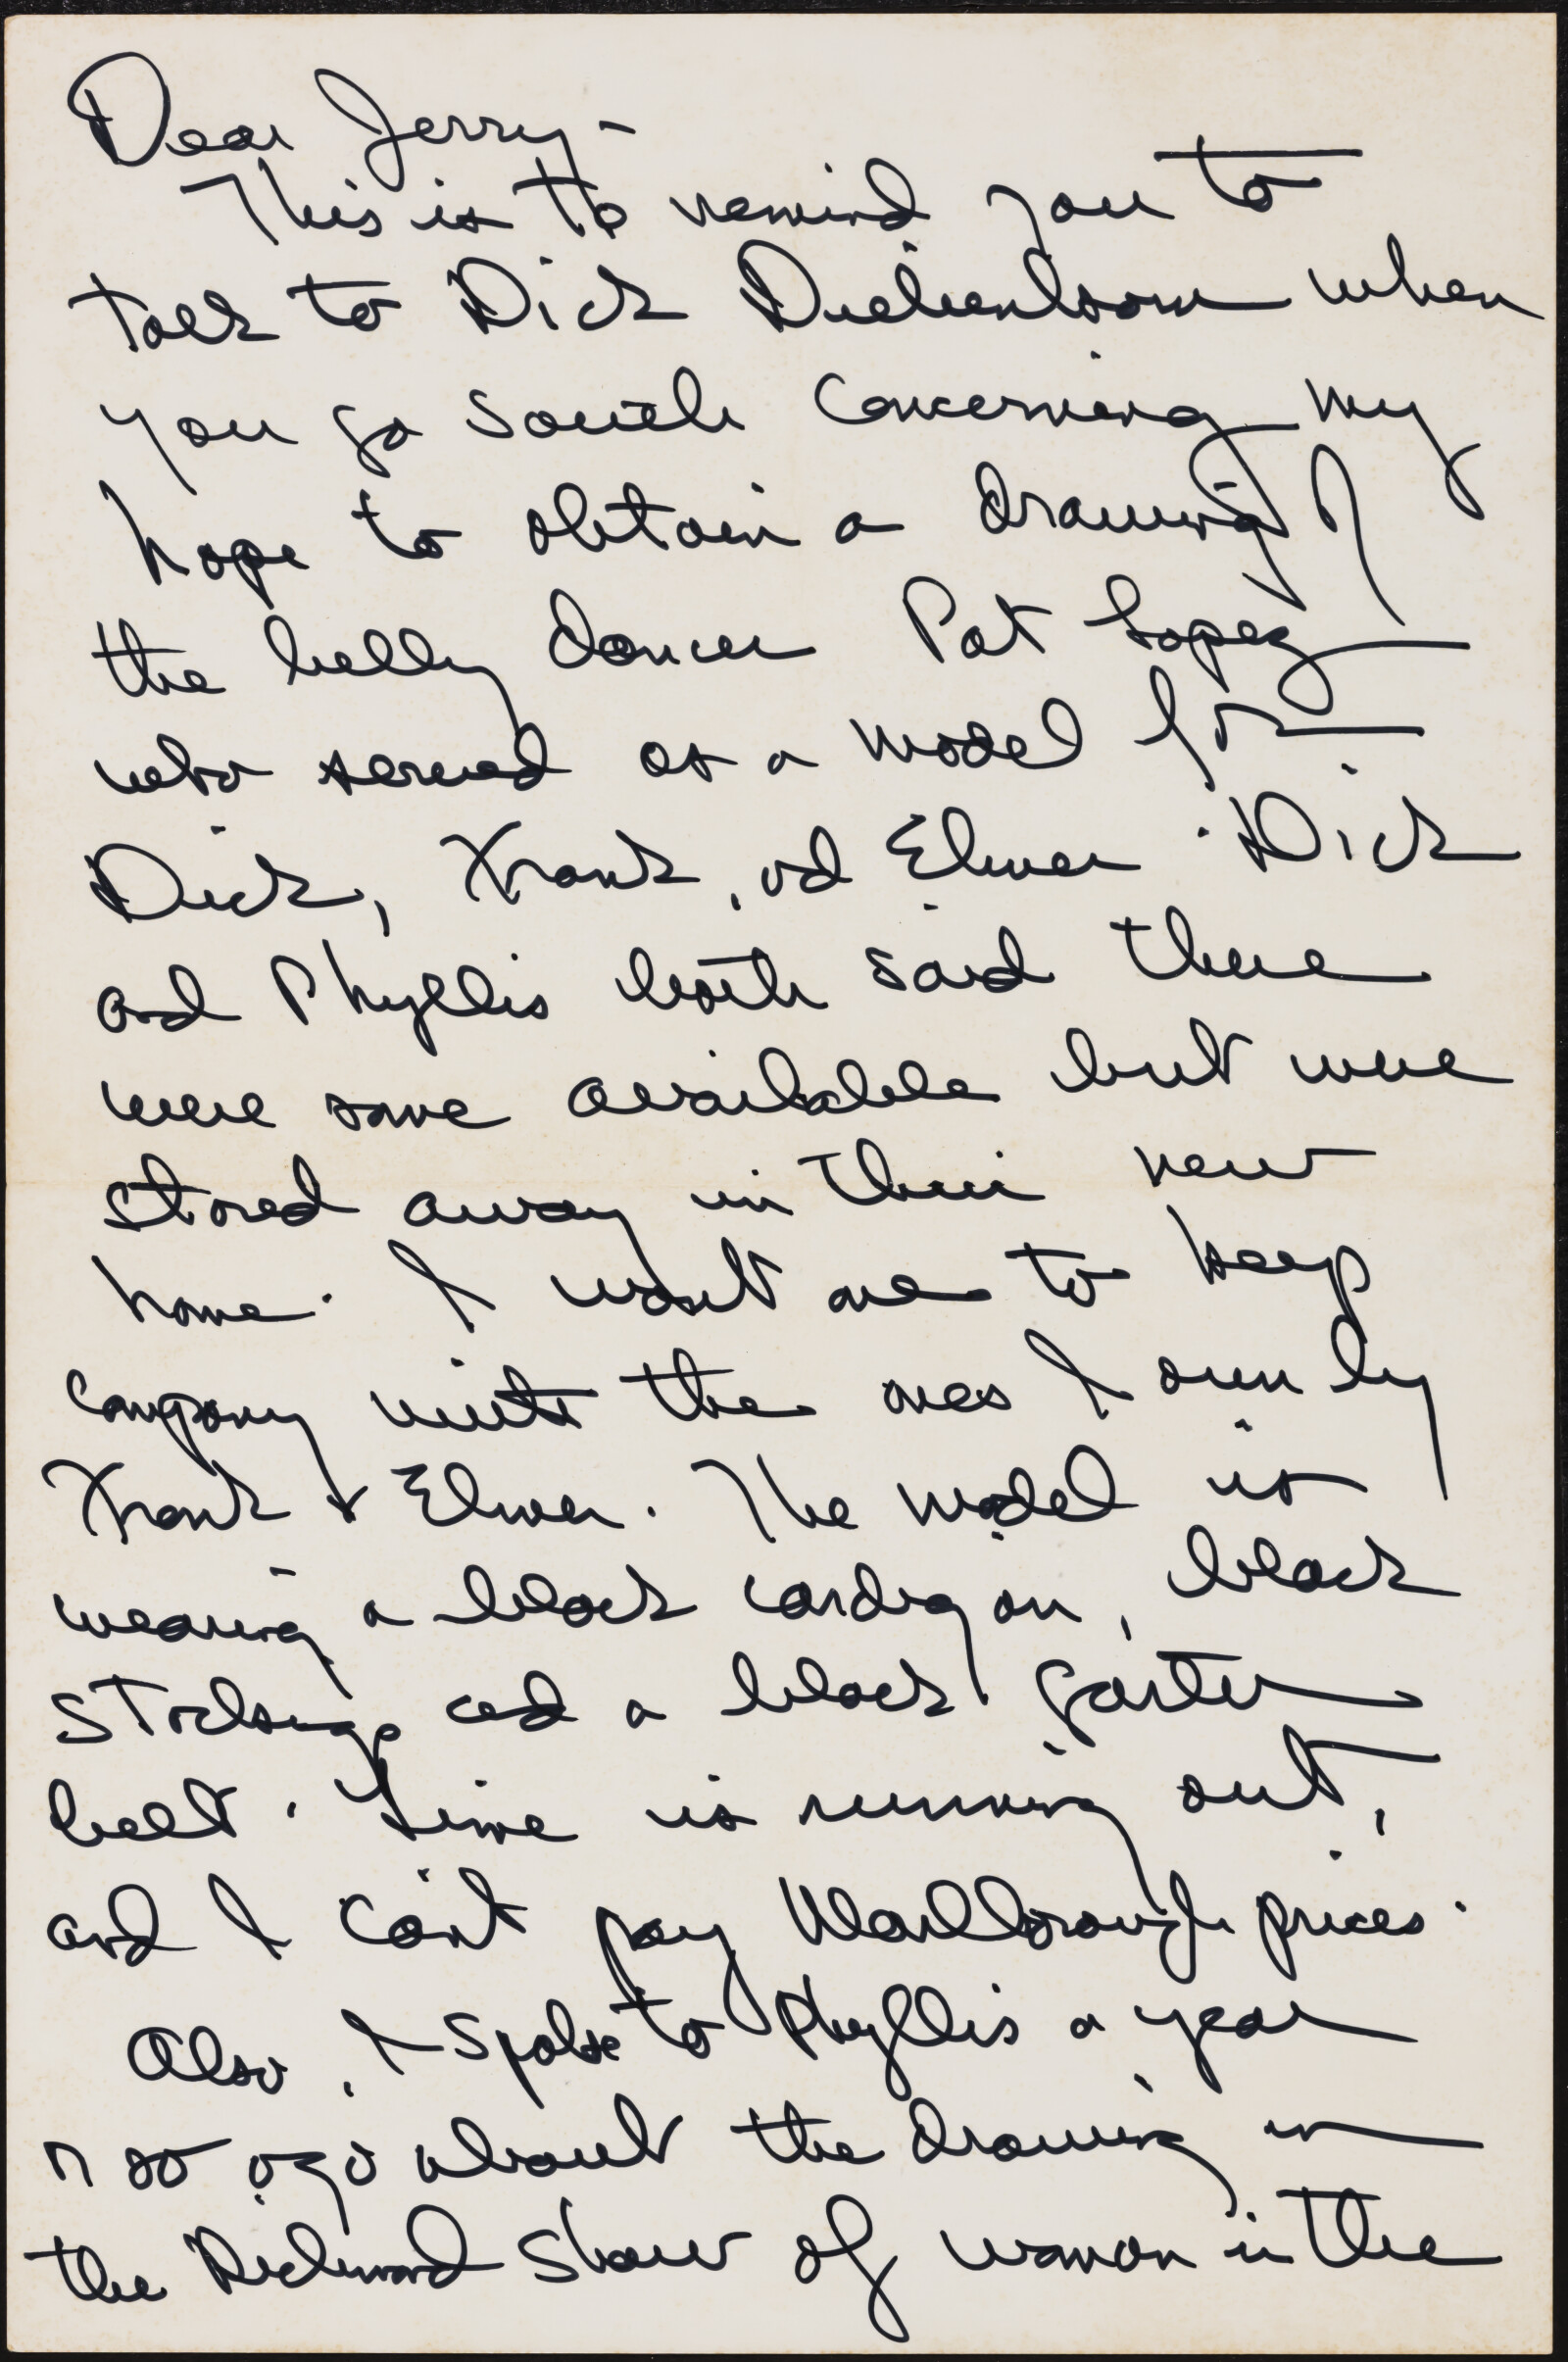 Dear Jerry -
This is to remind you to
talk to Dick Diebenkorn when
you go south concerning my
hope to obtain a drawing of
the belly dancer Pat Lopez
who served as a model for
Dick, Frank, and Elmer. Dick
and Phyllis both said there
were some available but were
stored away in their new
home. I want one to keep
company with the ones I own by
Frank & Elmer. The model is
wearing a black cardigan, black
stockings and a black garter
belt. Time is running out,
and I can't pay Marlborough prices.
Also, I spoke to Phyllis a year
or so ago about the drawing in
the Richmond show of woman in the